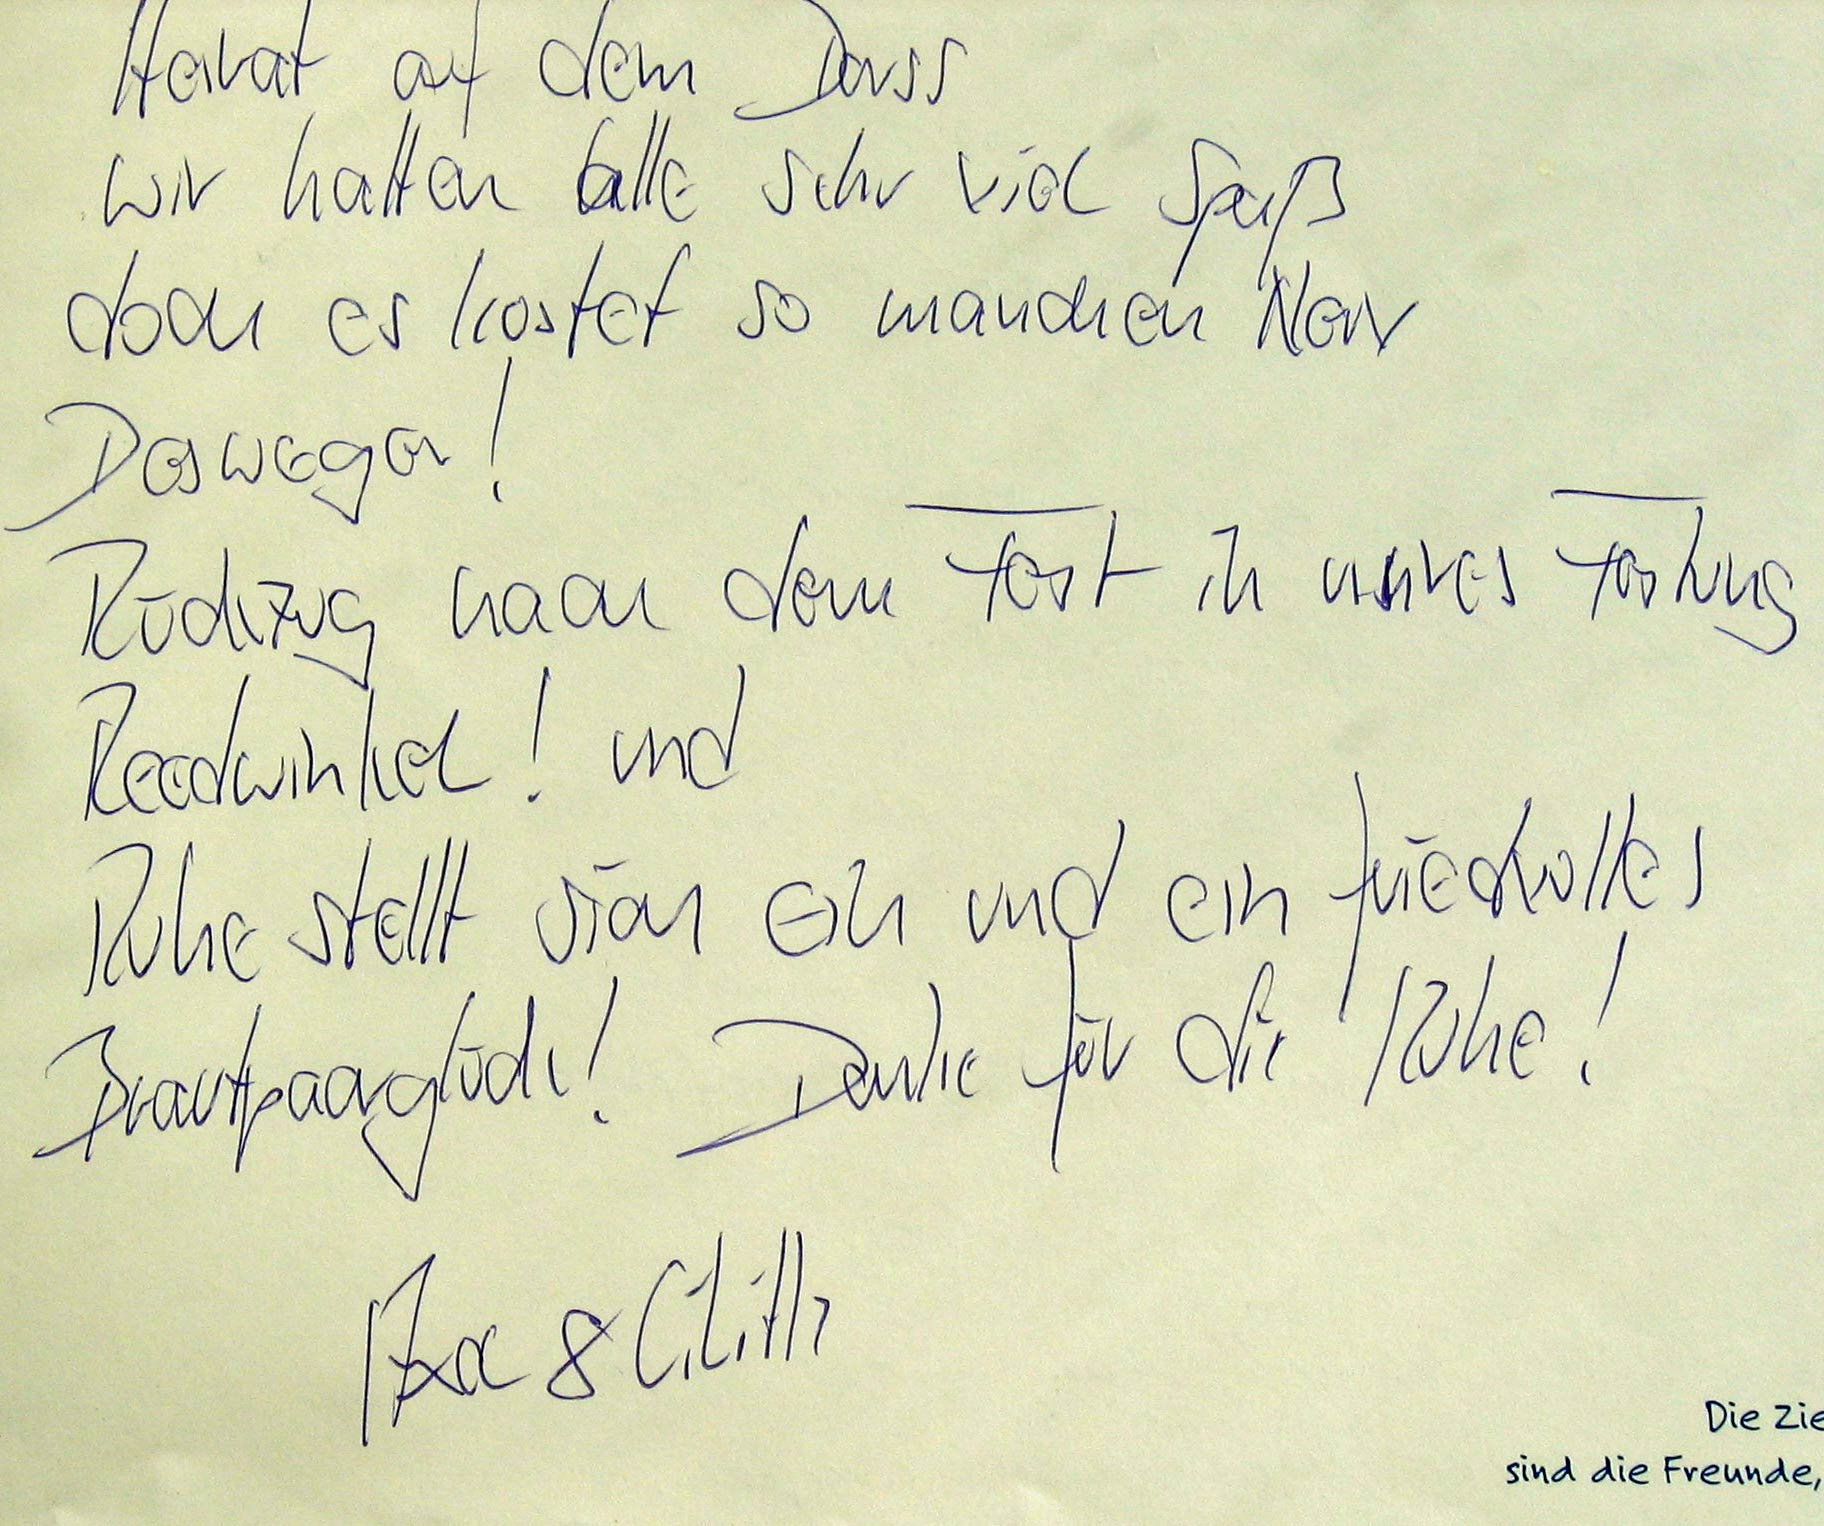 Heirat auf dem Darss
wir hatten alle sehr viel Spaß
doch es kostet so manchen Nerv
Deswegen!
Rückzug nach dem Fest in unsres Festung
Reedwinkel! und
Ruhe stellt sich ein und ein friedvolles
Brautpaarglück! Danke für die Ruhe!
& Lilith
Die Zie
sind die Freunde,